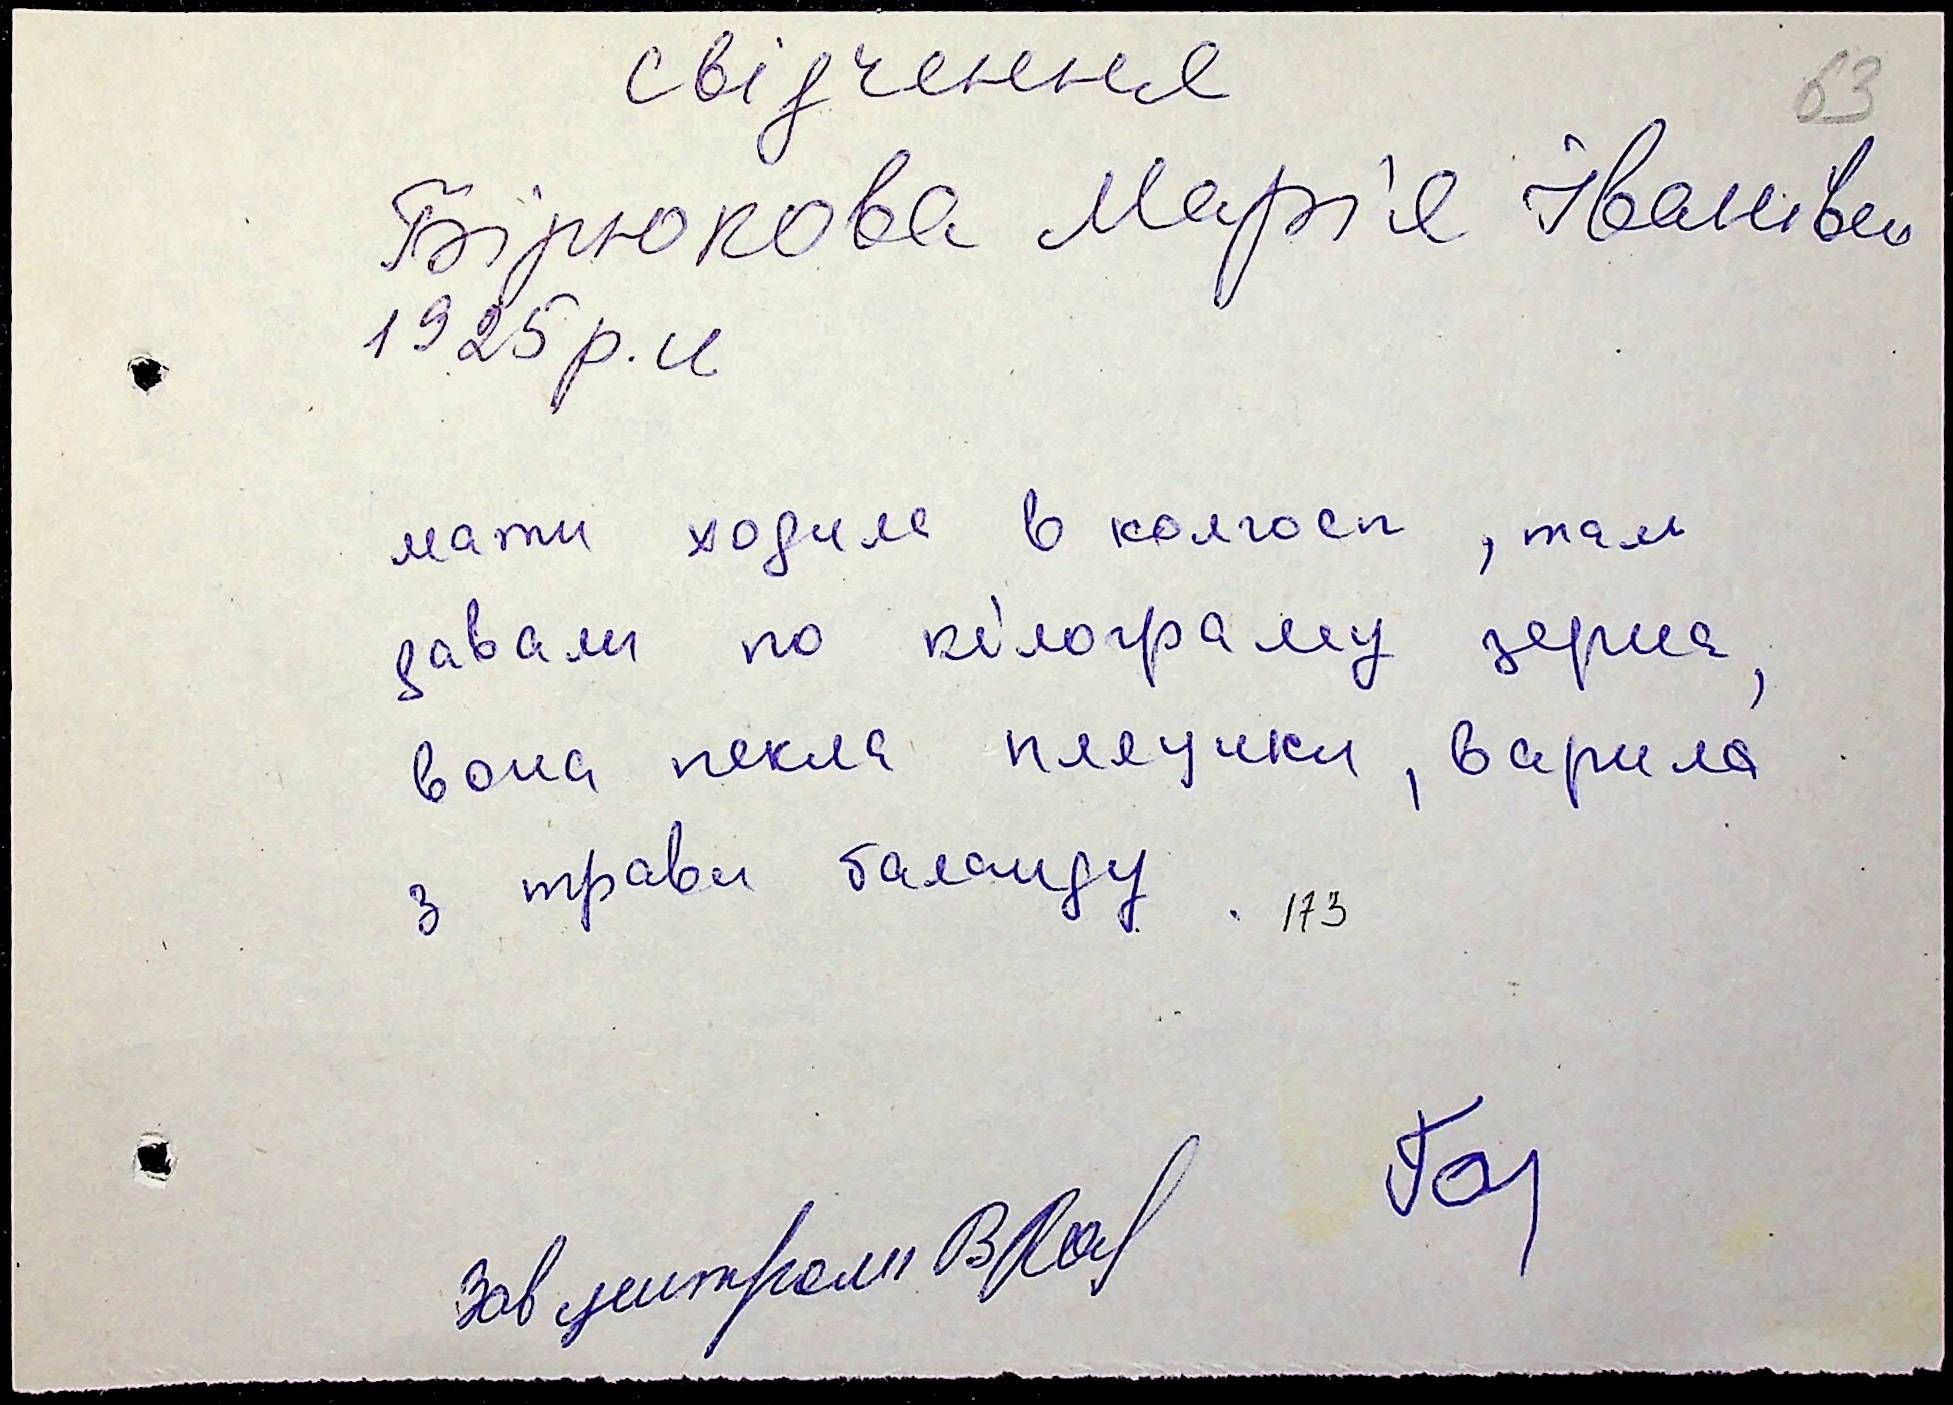 свідчення
63
Бірюкова Марі'я Іванівна
1925 р.н
мати ходила в колгосп, там
давали по кілограму зерна,
вона пекла пляцики, варила
з трави баланду. 173
Зав центром